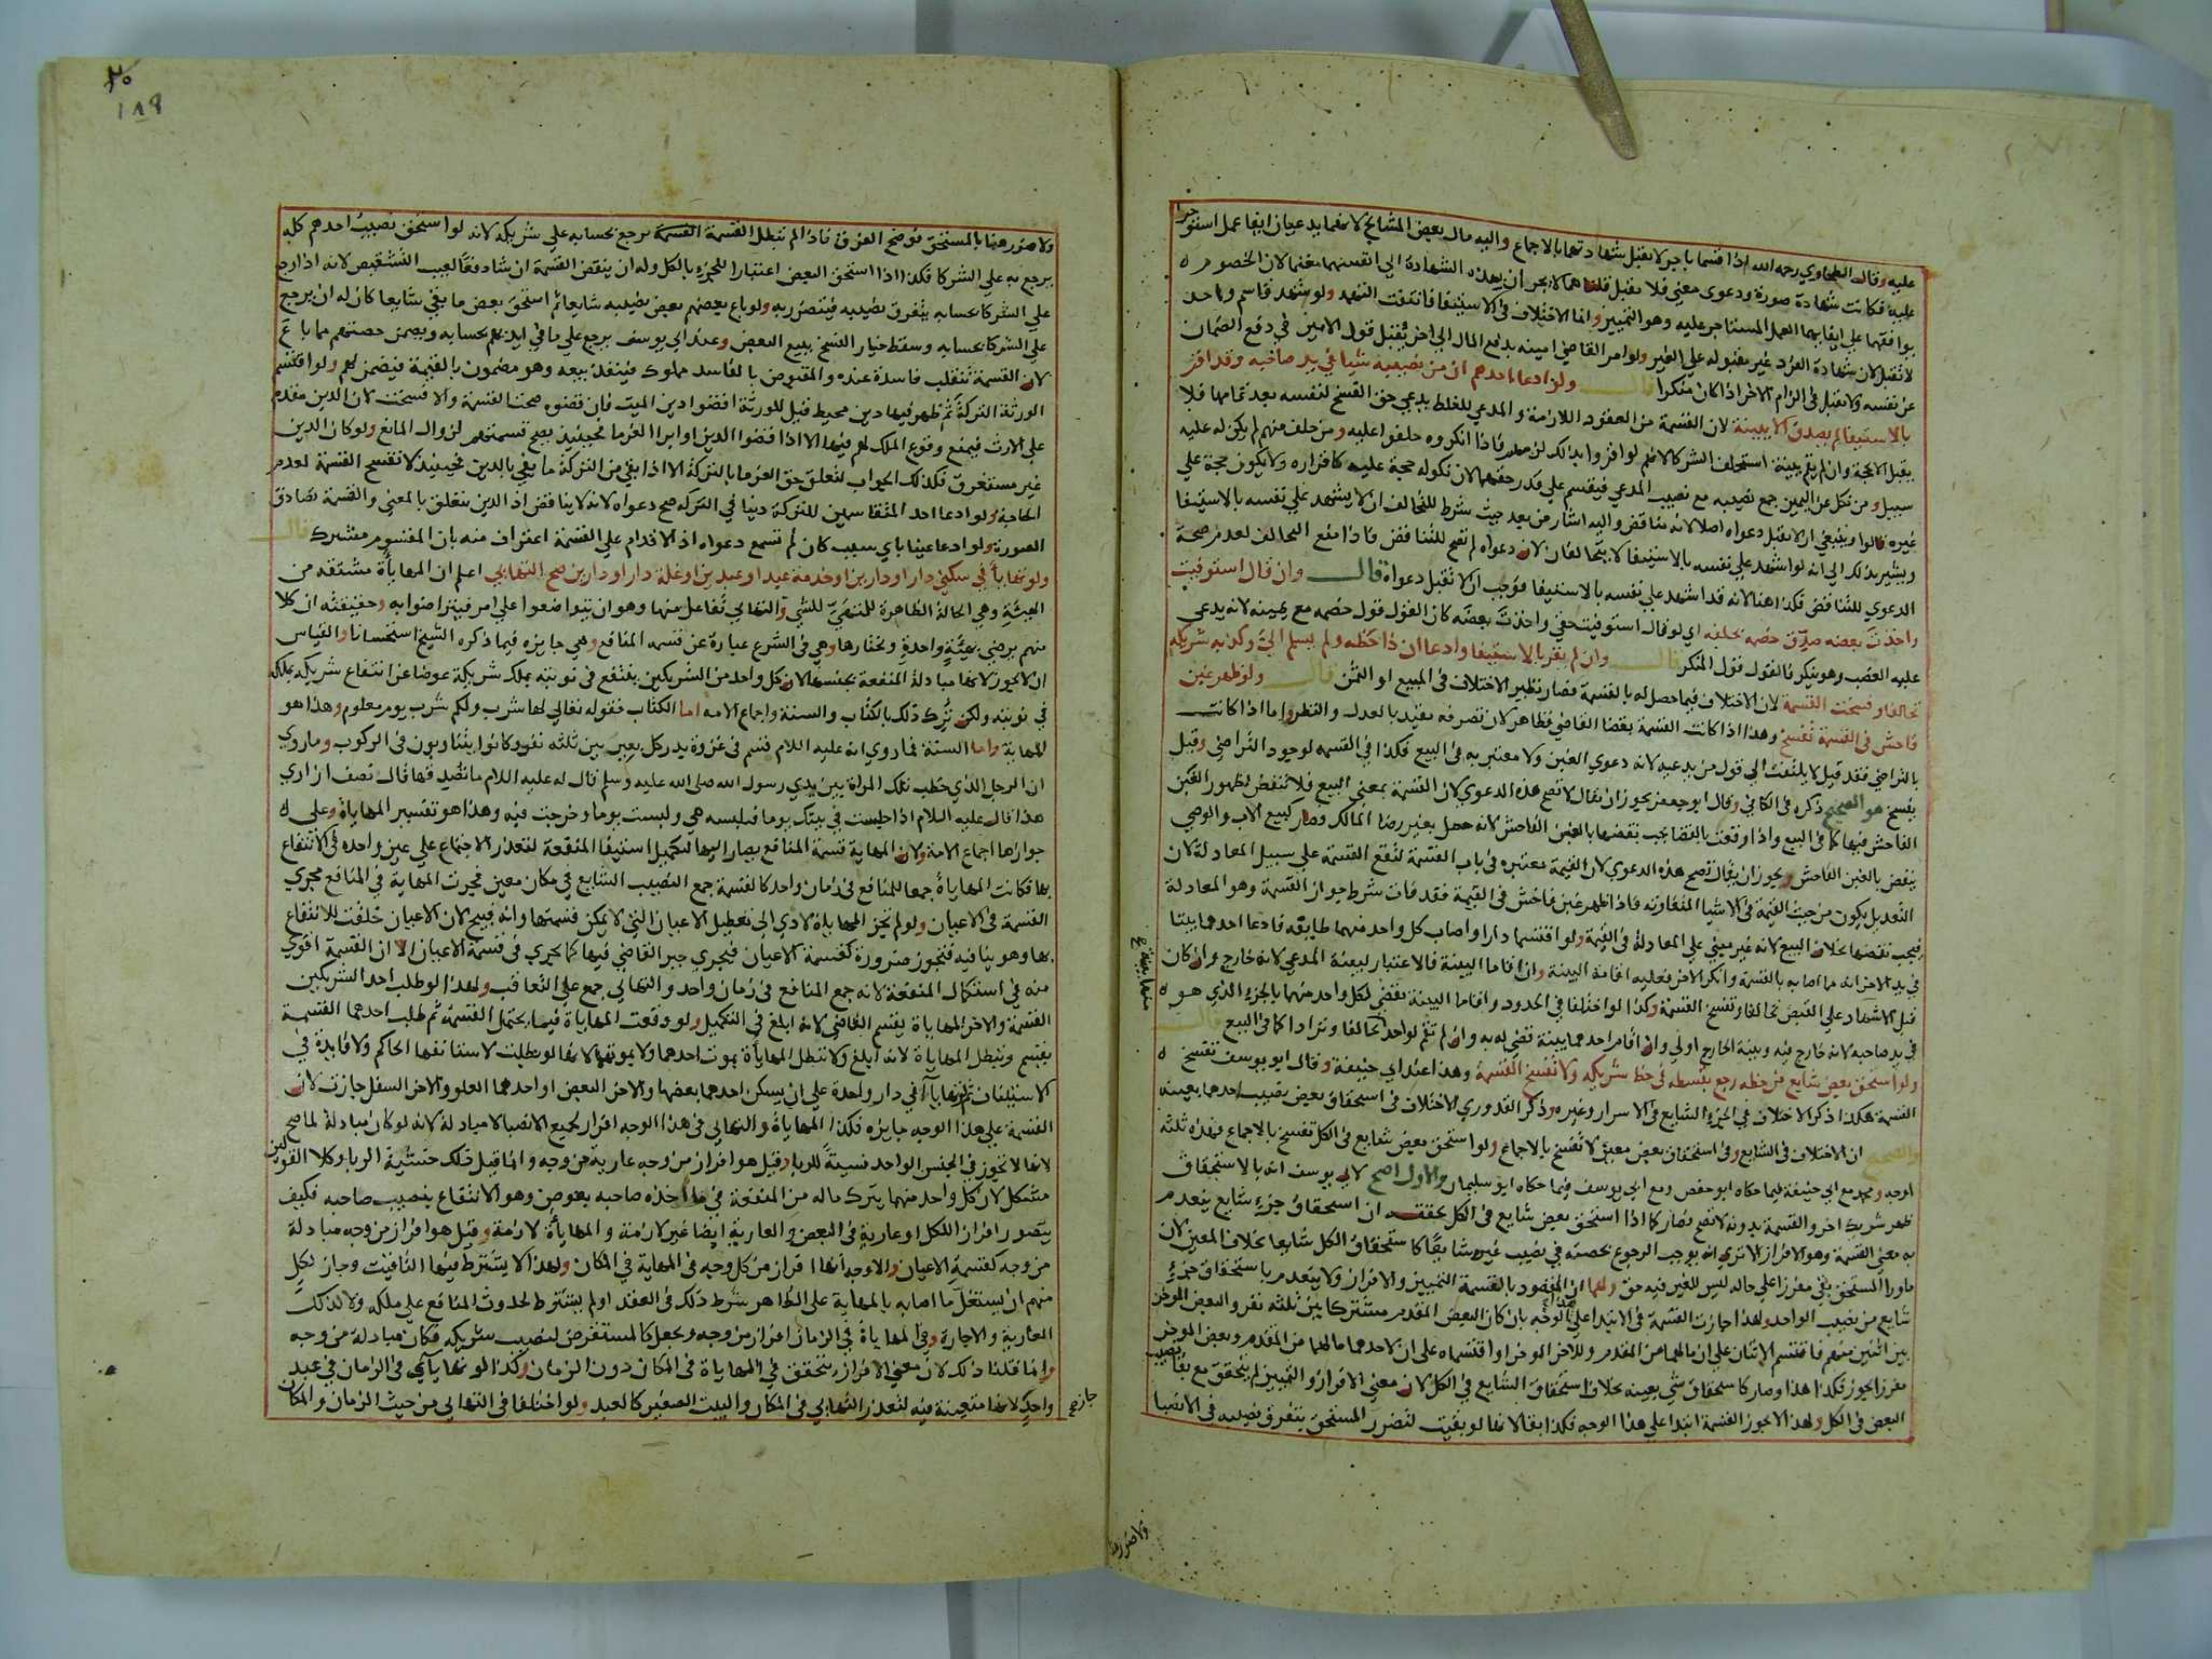 عليه وقال الطحاوي رحمه الله اذا قسما باجر لا تقبل شهادتهما بالاجماع واليه مال بعض المشايخ لانهما يدعيان ايفا عمل استوجرا
عليه فكانت شهادة صورة ودعوى معنى فلا تقبل قلنا هما لا يجران بهذه الشهادة الي انفسهما مغنما لان الخصوم
يوافقهما علي ايفايهما العمل المستاجر عليه وهو التمييز وانما الاختلاف في الاستيفا فانتفت التهمة ولو شهد قاسم واحد
لا تقبل لان شهادة الفرد غير مقبوله علي الغير ولو امر القاضي امينه بدفع المال الي اخر يقبل قول الامين في دفع الضمان
عن نفسه ولا يقبل في الزام الاخر اذا كان منكرا قال ولو ادعا احدهم ان من نصيبه شيا في يد صاحبه وقد اقر
بالاستيفا لم يصدق الا ببينة لان القسمة من العقود اللازمة والمدعي للغلط يدعي حق الفسخ لنفسه بعد تمامها فلا
يقبل الا بحجة وان لم يقم بينة استحلف الشركا لانهم لو اقروا بذلك لزمهم فاذا انكروه حلفوا عليه ومن حلف منهم لم يكن له عليه
سبيل ومن نكل عن اليمين جمع نصيبه مع نصيب المدعي فيقسم علي قدر حقهما لان نكوله حجة عليه كاقراره ولا يكون حجة علي
غيره قالوا وينبغي ان لا تقبل دعواه اصلا لانه مناقض واليه اشار من بعد حيث شرط للتحالف ان لا يشهد علي نفسه بالاستيفا
ويشير بذلك الي انه لو اشهد علي نفسه بالاستيفا لا يتحالفان لان دعواه لم تصح للتناقض فاذا منع التحالف لعدم صحة
الدعوي للتناقض فكذا هنا لانه قد اشهد علي نفسه بالاستيفا فوجب ان لا تقبل دعواه قال وان قال استوفيت
واخذت بعضه صدق خصمه بحلفه اي لو قال استوفيت حقي واخذت بعضه كان القول قول خصمه مع يمينه لانه يدعي
عليه الغصب وهو ينكر فالقول قول المنكر قال وان لم يقر بالاستيفا وادعا ان ذا حظه ولم يسلم الي وكذبه شريكه
تحالفا وفسخت القسمة لان الاختلاف فيما حصل له بالقسمة فصار نظير الاختلاف في المبيع او الثمن قال ولو ظهر غبن
فاحش في القسمة تفسخ وهذا اذا كانت القسمة بقضا القاضي فظاهر لان تصرفه مقيد بالعدل والنظر واما اذا كانت
بالتراضي فقد قيل لا يلتفت الي قول من يدعيه لانه دعوي الغبن ولا معتبر به في البيع فكذا في القسمه لوجود التراضي وقيل
يفسخ هو الصحيح ذكره في الكافي وقال ابو جعفر يجوز ان يقال لا تصح هذه الدعوي لان القسمة بمعنى البيع فلا تنتقض لظهور الغبن
الفاحش فيها كما في البيع واذا وقعت بالقضا يجب نقضها بالغبن الفاحش لانه حصل بغير رضا المالك وصار كبيع الاب والوصي
ينقض بالغبن الفاحش ويجوز ان يقال تصح هذه الدعوي لان القيمة معتبره في باب القسمة لتقع القسمة علي سبيل المعادلة لان
التعديل يكون من حيث القيمة في الاشيا المتفاوته فاذا ظهر غبن فاحش في القيمة فقد فات شرط جواز القسمة وهو المعادلة
فيجب نقضها بخلاف البيع لانه غير مبني علي المعادلة في القيمة ولو اقتسما دارا واصاب كل واحد منهما طايفه فادعا احدهما بيتا
في يد الاخر انه مما اصابه بالقسمة وانكر الاخر فعليه اقامة البينة وان اقاما البينة فالاعتبار لبينة المدعي لانه خارج وان كان
قبل الاشهاد علي القبض تحالفا وتفسخ القسمة وكذا لو اختلفا في الحدود واقاما البينة يقضي لكل واحد منهما بالجزء الذي هو
في يد صاحبه لانه خارج فيه وبينة الخارج اولي وان اقام احدهما بينة قضي له به وان لم تقم لواحد تحالفا وترادا كما في البيع قال
ولو استحق بعض شايع من حظه رجع بقسطه في حظ شريكه ولا تفسخ القسمة وهذا عند ابي حنيفة وقال ابو يوسف تفسخ
القسمة هكذا ذكر الاختلاف في الجزء الشايع في الاسرار وغيره وذكر القدوري الاختلاف في استحقاق بعض نصيب احدهما بعينه
والصحيح ان الاختلاف في الشايع وفي استحقاق بعض معين لا تفسخ بالاجماع ولو استحق بعض شايع في الكل تفسخ بالاجماع فهذه ثلثة
اوجه ومحمد مع ابي حنيفة فيما حكاه ابو حفص ومع ابي يوسف فيما حكاه ابو سليمان والاول اصح لابي يوسف انه بالاستحقاق
ظهر شريك اخر والقسمة بدونه لا تصح فصار كما اذا استحق بعض شايع في الكل يحققه ان استحقاق جزء شايع ينعدم
به معنى القسمة وهو الافراز الا تري انه يوجب الرجوع بحصته في نصيب غيره شايعا كاستحقاق الكل شايعا بخلاف المعين لان
ماورا المستحق بقي مفرزا علي حاله ليس للغير فيه حق ولهما ان المقصود بالقسمة التمييز والافراز ولا ينعدم باستحقاق جزء
شايع من نصيب الواحد ولهذا جازت القسمة في الابتدا علي هذا الوجه بان كان البعض المقدم مشتركا بين ثلثة نفر والبعض الموخر
بين اثنين منهم فاقتسم الاثنان علي ان ما لهما من المقدم وللاخر الموخر او اقتسماه علي ان لاحدهما ما لهما من المقدم وبعض الموخر
مفرزا يجوز فكذا هذا وصار كاستحقاق شي بعينه بخلاف استحقاق الشايع في الكل لان معنى الافراز والتمييز لم يتحقق مع بقا نصيب
البعض في الكل ولهذا لا يجوز القسمة ابتدا علي هذا الوجه فكذا بقا لانها لو بقيت لتضرر المستحق بتفرق نصيبه في الانصبا
ولا ضرر
٢٠
١٨٩
ولا ضرر هنا بالمستحق فوضح الفرق فاذا لم تبطل القسمة القسمة يرجع بحسابه علي شريكه لانه لو استحق نصيب احدهم كله
يرجع به علي الشركا فكذا اذا استحق البعض اعتبارا للجزء بالكل وله ان ينقض القسمة ان شا دفعا لعيب التشقيص لانه اذا رجع
علي الشركا بحسابه يتفرق نصيبه فيتضرر به ولو باع بعضهم بعض نصيبه شايعا ثم استحق بعض ما بقي شايعا كان له ان يرجع
علي الشركا بحسابه وسقط خيار الفسخ ببيع البعض وعند ابي يوسف يرجع علي ما في ايديهم بحسابه ويضمن حصتهم مما باع
لان القسمة تنقلب فاسدة عنده والمقبوض بالفاسد مملوك فينفذ بيعه وهو مضمون بالقيمة فيضمن لهم ولو اقتسم
الورثة التركة ثم ظهر فيها دين محيط قيل للورثة اقضوا دين الميت فان قضوه صحت القسمة والا فسخت لان الدين مقدم
علي الارث فيمنع وقوع الملك لهم فيها الا اذا قضوا الدين او ابرا الغرما فحينيذ يصح قسمتهم لزوال المانع ولو كان الدين
غير مستغرق فكذلك الجواب لتعلق حق الغرما بالتركة الا اذا بقي من التركة ما يفي بالدين فحينيذ لا تفسخ القسمة لعدم
الحاجة ولو ادعا احد المتقاسمين للتركة دينا في التركه صح دعواه لانه لا يناقض اذ الدين يتعلق بالمعنى والقسمة تصادق
الصورة ولو ادعا عينا باي سبب كان لم تسمع دعواه اذ الاقدام علي القسمة اعتراف منه بان المقسوم مشترك قال
ولو تهايا في سكني دار او دارين او خدمة عبد او عبدين او غلة دار او دارين صح التهايي اعلم ان المهاياة مشتقة من
الهيئة وهي الحالة الظاهرة للمتهيئ للشي والتهايي تفاعل منها وهو ان يتواضعوا علي امر فيتراضوا به وحقيقته ان كلا
منهم يرضي بهيئة واحدة ويختارها وهي في الشرع عبارة عن قسمه المنافع وهي جايزه فيما ذكره الشيخ استحسانا والقياس
ان لا يجوز لانها مبادلة المنفعة بجنسها لان كل واحد من الشريكين ينتفع في نوبته بملك شريكه عوضا عن انتفاع شريكه بملكه
في نوبته ولكن ترك ذلك بالكتاب والسنة واجماع الامه اما الكتاب فقوله تعالي لها شرب ولكم شرب يوم معلوم وهذا هو
المهاية واما السنة فما روي انه عليه اللام قسم في غزوة بدر كل بعير بين ثلثه نفر وكانوا يتناوبون في الركوب وما روي
ان الرجل الذي خطب تلك المراة بين يدي رسول الله صلى الله عليه وسلم قال له عليه اللام ما تصدقها قال نصف ازاري
هذا قال عليه اللام اذا جلست في بيتك يوما فبلبسه هي ولبست يوما وخرجت فيه وهذا هو تفسير المهاياة وعلي
جوازها اجماع الامة ولان المهاية قسمة المنافع يصار اليها لتكميل استيفا المنفعة لتعذر الاجتماع علي عين واحده في الانتفاع
بها فكانت المهاياة جمعا للمنافع في زمان واحد كالقسمة جمع النصيب الشايع في مكان معين فجرت المهاية في المنافع مجري
القسمة في الاعيان ولو لم تجز المهاياة لادي الي تعطيل الاعيان التي لا يمكن قسمتها وانه قبيح لان الاعيان خلقت للانتفاع
بها وهو ينافيه فتجوز ضرورة كقسمة الاعيان فيجري جبر القاضي فيها كما يجري في قسمة الاعيان الا ان القسمة اقوي
منه في استكمال المنفعة لانه جمع المنافع في زمان واحد والتهايي جمع علي التعاقب ولهذا لو طلب احد الشريكين
القسمة والاخر المهاياة يقسم القاضي لانه ابلغ في التكميل ولو وقعت المهاياة فيما يحتمل القسمة ثم طلب احدهما القسمة
يقسم وتبطل المهاياة لانه ابلغ ولا تبطل المهاياة بموت احدهما ولا بموتهما لانها لو بطلت لاستانفها الحاكم ولا فايدة في
الاستيناف ثم تهايآ في دار واحدة علي ان يسكن احدهما بعضها والاخر البعض او احدهما العلو والاخر السفل جازت لان
القسمة علي هذا الوجه جايزه فكذا المهاياة والتهايي في هذا الوجه افراز لجميع الانصبا لا مبادلة لانه لو كان مبادلة لما صح
لانها لا تجوز في الجنس الواحد نسيئة للربا وقيل هو افراز من وجه عارية من وجه وانما قيل ذلك خشية الربا وكلا القولين
مشكل لان كل واحد منهما يترك ماله من المنفعة في ما اخذه صاحبه بعوض وهو الانتفاع بنصيب صاحبه فكيف
يتصور افراز الكل او عارية في البعض والعارية ايضا غير لازمة والمهاياة لازمة وقيل هو افراز من وجه مبادلة
من وجه كقسمة الاعيان والاوجه انها افراز من كل وجه في المهاية في المكان ولهذا لا يشترط فيها التاقيت وجاز لكل
منهم ان يستغل ما اصابه بالمهاية علي الظاهر شرط ذلك في العقد او لم يشترط لحدوث المنافع علي ملكه ولا كذلك
العارية والاجارة وفي المهاياة في الزمان افراز من وجه ويجعل كالمستقرض لنصيب شريكه فكان مبادلة من وجه
وانما قلنا ذلك لان معني الافراز يتحقق في المهاياة في المكان دون الزمان وكذا لو تهايآ في الزمان في عبد
واحد لانها متعينة فيه لتعذر التهايي في المكان والبيت الصغير كالعبد ولو اختلفا في التهايي من حيث الزمان والمكان
جاز صح